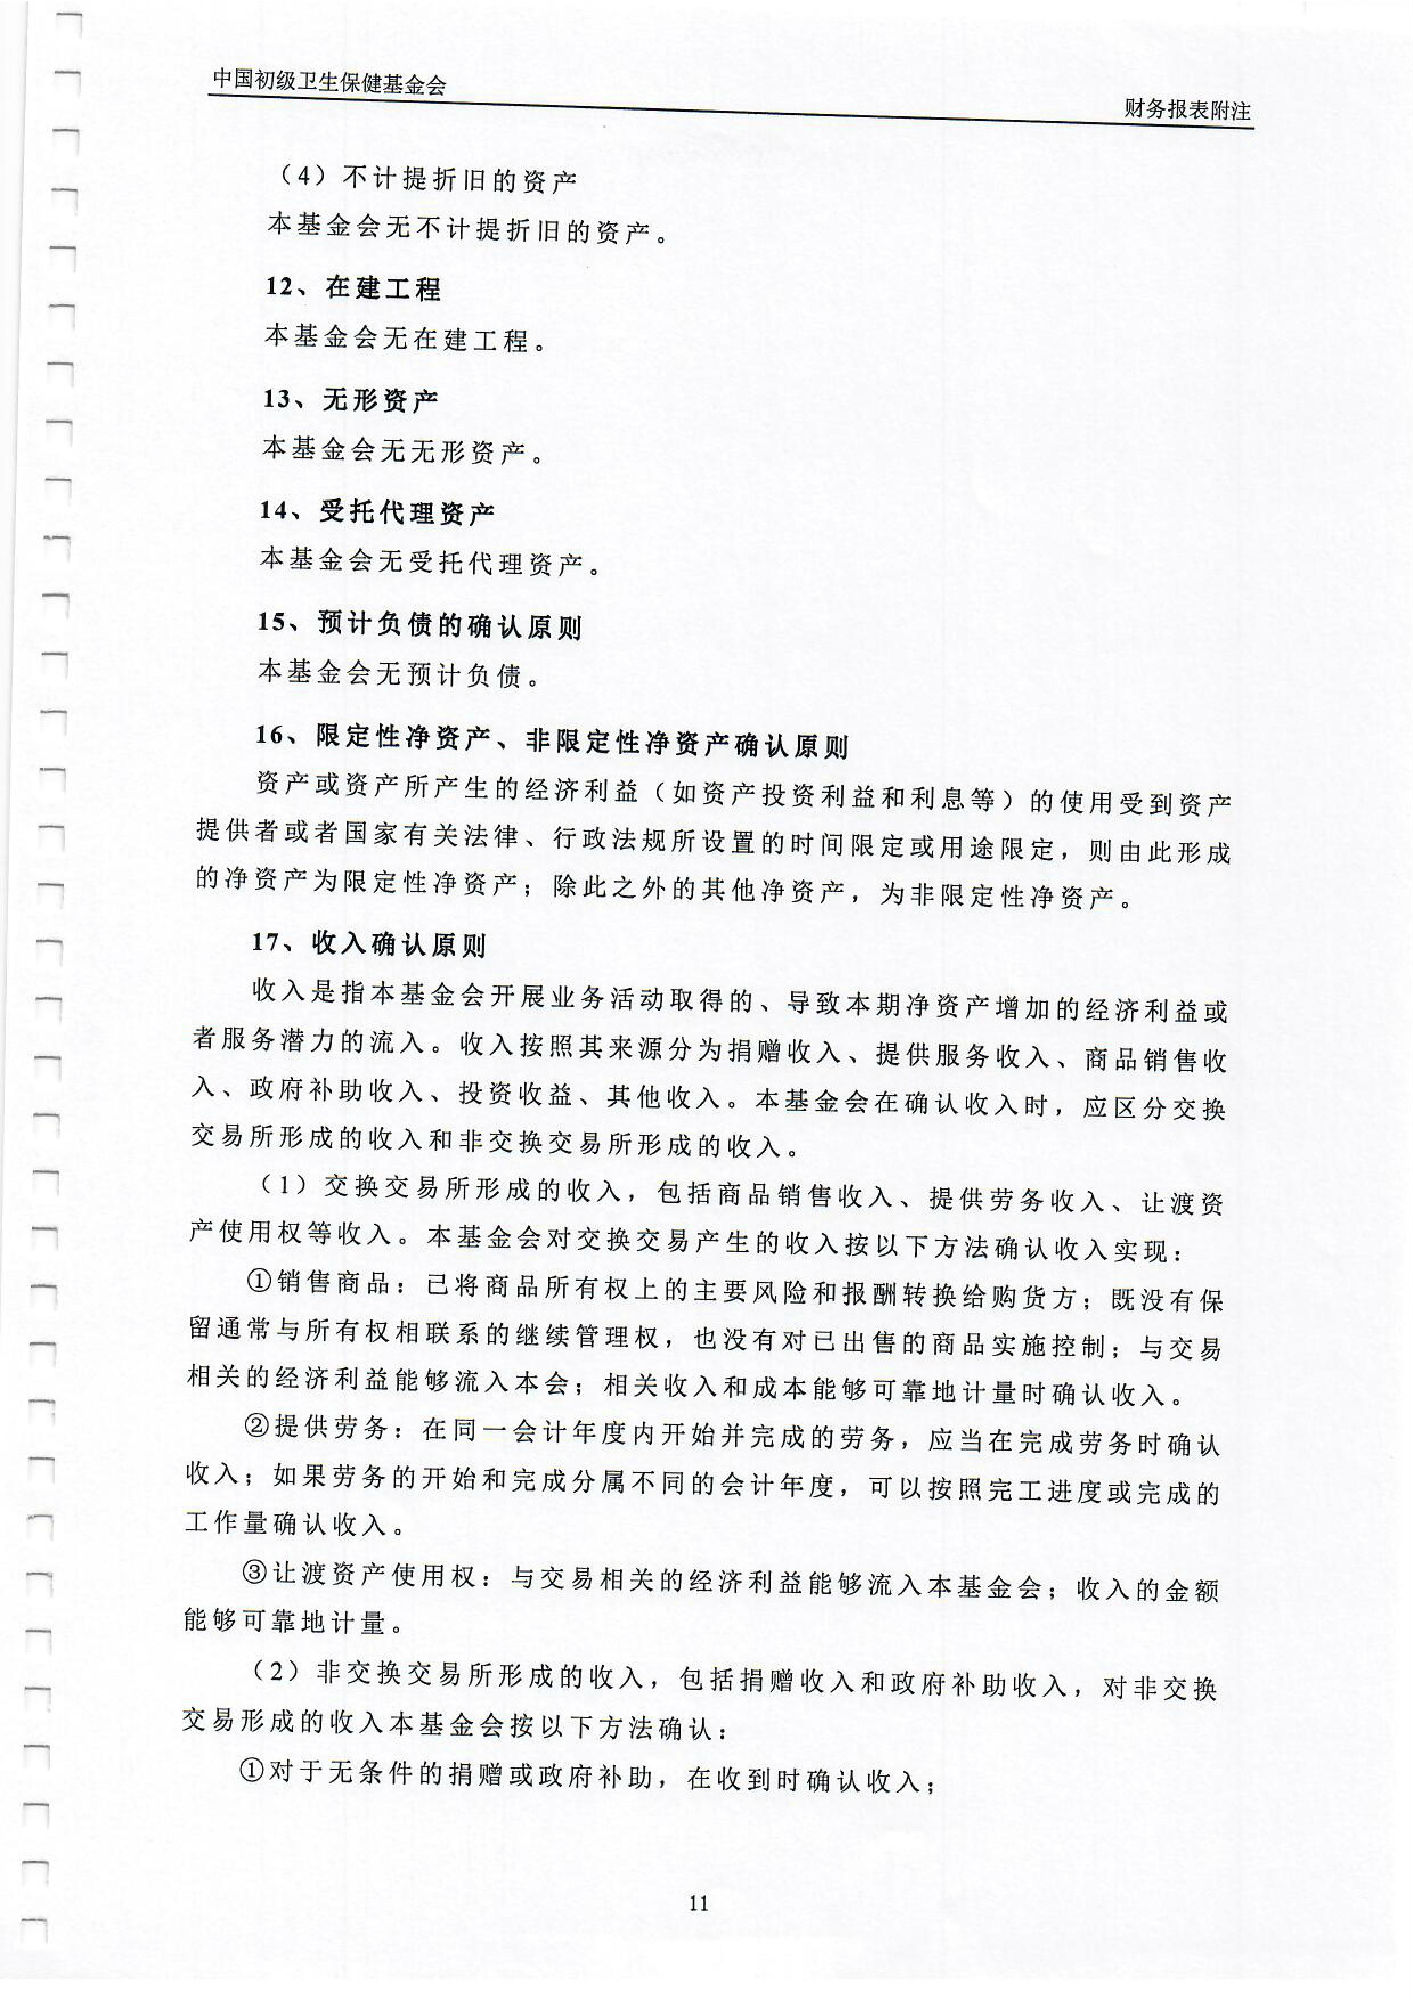 中国初级卫生保健基金会
财务报表附注
（4）不计提折旧的资产
本基金会无不计提折旧的资产。
12、在建工程
本基金会无在建工程。
13、无形资产
本基金会无无形资产。
14、受托代理资产
本基金会无受托代理资产。
15、预计负债的确认原则
本基金会无预计负债。
16、限定性净资产、非限定性净资产确认原则
资产或资产所产生的经济利益（如资产投资利益和利息等）的使用受到资产
提供者或者国家有关法律、行政法规所设置的时间限定或用途限定，则由此形成
的净资产为限定性净资产；除此之外的其他净资产，为非限定性净资产。
17、收入确认原则
收入是指本基金会开展业务活动取得的、导致本期净资产增加的经济利益或
者服务潜力的流入。收入按照其来源分为捐赠收入、提供服务收入、商品销售收
入、政府补助收入、投资收益、其他收入。本基金会在确认收入时，应区分交换
交易所形成的收入和非交换交易所形成的收入。
（1）交换交易所形成的收入，包括商品销售收入、提供劳务收入、让渡资
产使用权等收入。本基金会对交换交易产生的收入按以下方法确认收入实现：
①销售商品：已将商品所有权上的主要风险和报酬转换给购货方；既没有保
留通常与所有权相联系的继续管理权，也没有对已出售的商品实施控制；与交易
相关的经济利益能够流入本会；相关收入和成本能够可靠地计量时确认收入。
②提供劳务：在同一会计年度内开始并完成的劳务，应当在完成劳务时确认
收入；如果劳务的开始和完成分属不同的会计年度，可以按照完工进度或完成的
工作量确认收入。
③让渡资产使用权：与交易相关的经济利益能够流入本基金会；收入的金额
能够可靠地计量。
（2）非交换交易所形成的收入，包括捐赠收入和政府补助收入，对非交换
交易形成的收入本基金会按以下方法确认：
①对于无条件的捐赠或政府补助，在收到时确认收入；
11